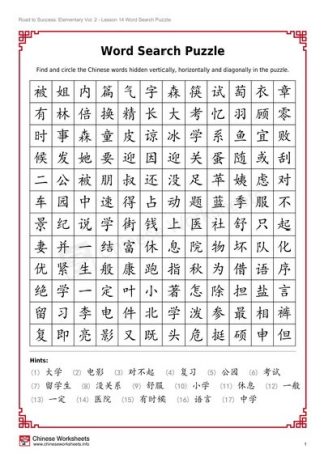 Road to Success: Elementary Vol. 2 - Lesson 14 Word Search Puzzle
Word Search Puzzle
Find and circle the Chinese words hidden vertically, horizontally and diagonally in the puzzle.
被 姐 内 篇 气 字 森 篌 试 萄 衣 章
有 林 倍 换 精 长 大 考 忆 羽 顾 零
时 事 森 童 皮 谅 冰 学 系 鱼 宜 败
候 发 她 要 迎 因 迎 关 蛋 随 或 刮
二 公 被 朋 叔 还 没 足 苹 姨 虑 对
车 园 中 速 得 占 动 题 蓝 季 服 不
景 纪 说 学 術 钱 上 医 社 舒 只 起
妻 并 一 结 富 休 息 院 物 坏 队 化
优 紧 生 般 康 跑 指 秋 为 借 语 序
绝 学 一 定 叶 小 著 怎 除 担 盐 言
留 习 李 电 件 北 学 泼 参 最 相 裤
复 即 亮 影 又 既 头 危 挺 硕 申 但
Hints:
(1) 大学 (2) 电影 (3) 对不起 (4) 复习 (5) 公园 (6) 考试
(7) 留学生 (8) 没关系 (9) 舒服 (10) 小学 (11) 休息 (12) 一般
(13) 一定 (14) 医院 (15) 有时候 (16) 语言 (17) 中学
Chinese Worksheets
www.chineseworksheets.info
1